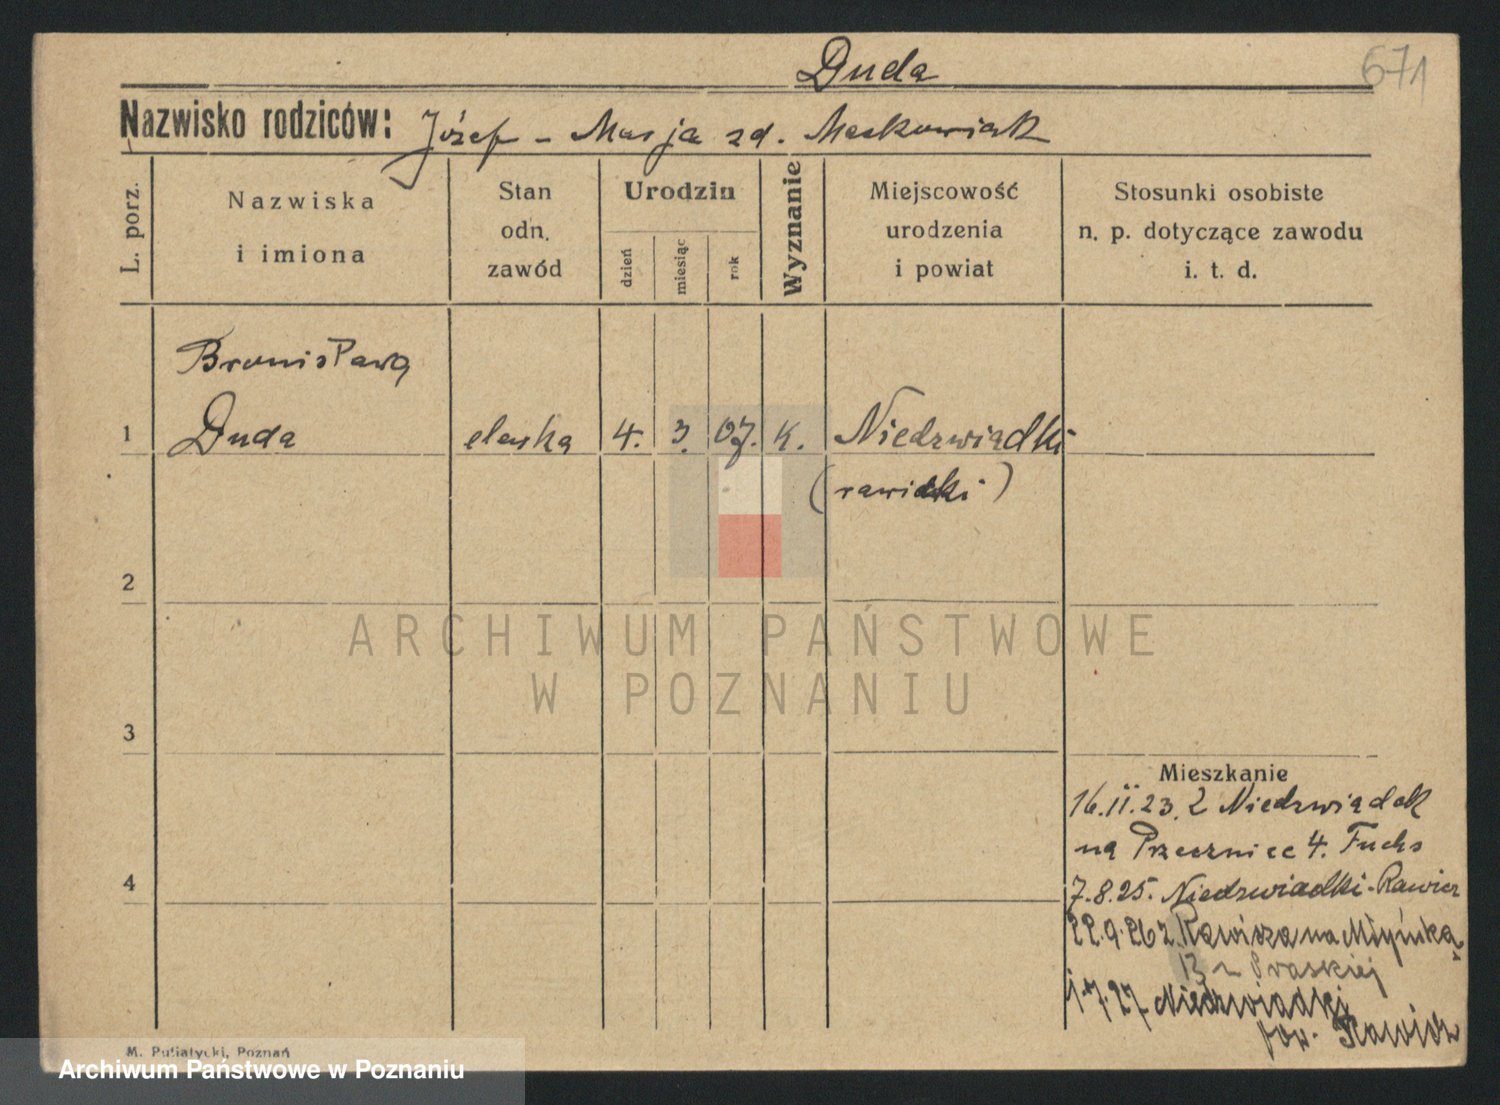 Duda
671
Nazwisko rodziców: Józef - Marja zd. Maćkowiak
L. porz.
Nazwiska
i imiona
Stan
odn.
zawód
Urodzin
dzień
miesiąc
rok
Wyznanie
Miejscowość
urodzenia
i powiat
Stosunki osobiste
n. p. dotyczące zawodu
i. t. d.
Bronisława
1 Duda 4. 3. 07. k. Niedzwiadki
2
ARCHIWUM PAŃSTWOWE
W POZNANIU
3
Mieszkanie
16.II.23. z Niedzwiadek
na Przecznicę 4. Fuchs
4
7.8.25. Niedzwiadki-Rawicz
22.9.26 z Rawicza na Młyńką
13 Praskiej
1.7.27. Niedzwiadki
pow. Rawicz
M. Putiatycki, Poznań
Archiwum Państwowe w Poznaniu